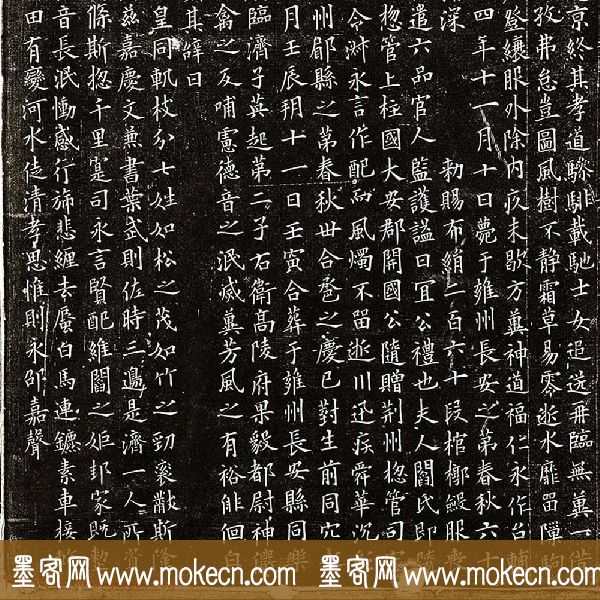 京終其孝道驂騑載馳士女追送冊臨無
孜弗怠豈圖風樹不静霜草易零逝水靡留隟駒
登縗服外除内疚未歇方冀神道福仁永作台輔
四年十一月十日薨于雍州長安之第春秋六十
深 勑賜布絹二百六十段棺槨殿服喪
遣六品官人監護謚曰宜公禮也夫人閻氏即
揔管上柱國大安郡開國公隨贈荆州揔管司
令淋永言作配而風燭不留逝川迅疾舜華沉
州郿縣之第春秋卅合巹之慶已對生前同穴
月壬辰朔十一日壬寅合葬于雍州長安縣同樂
臨濟子英起第二子右衛高陵府果毅都尉神
禽之反哺憲德音之泯滅冀芳風之有裕俳佪
其辭曰
皇同軌枝分七姓如松之茂如竹之勁袞黻斯
兹嘉慶文兼書葉武則佐時三邊是濟一人所
條斯揔千里寔司永言賢配維閻之姬邦家既
音長泯慟感行旆悲纏去蜃白馬連鑣素車接
田有變河水徒清孝思惟則永邵嘉聲
墨客网 www.mokecn.com 墨客网 www.mokecn.com